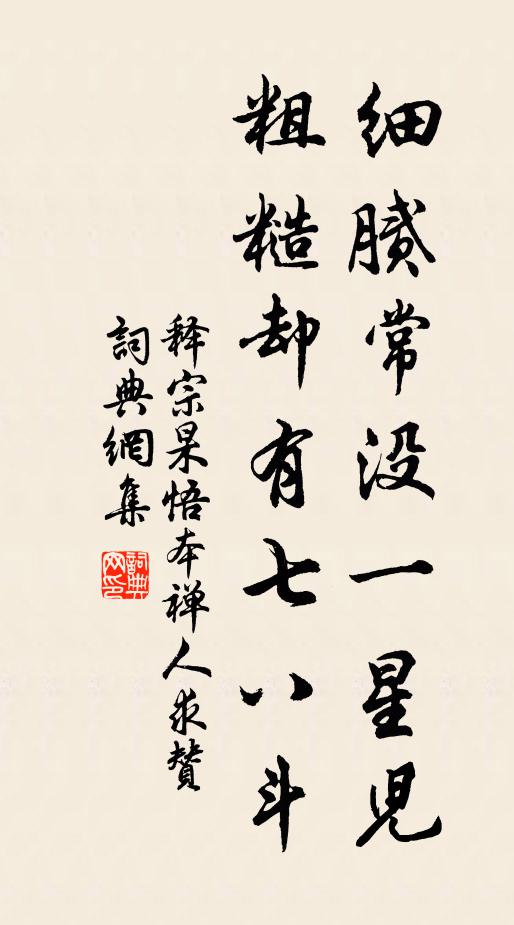 细腻常没一星児
粗糙却有七八斗
释宗杲悟本禅人求赞
詞典網集
詞典网印